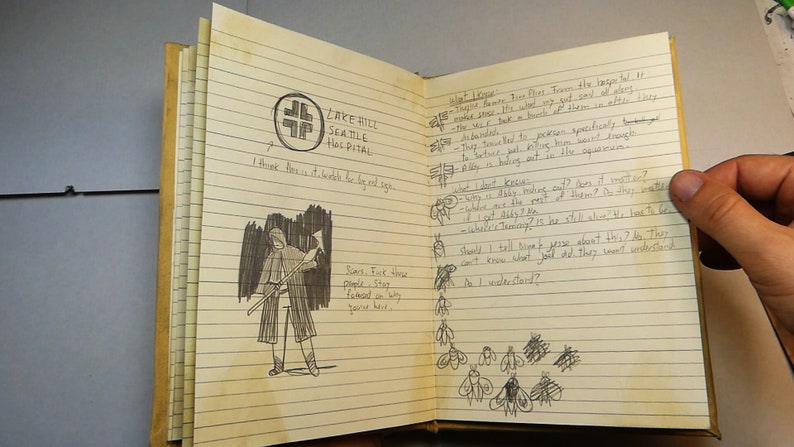 LAKEHILL
SEATTLE
HOSPITAL
I think this is it. Watch for big red sign.
Scars. Fuck these
people. Stay
focused on why
you're here.
What I know:
- They're former Fire Flies. From the hospital. It
makes sense. It's what my gut said all along
- The WLF took a bunch of them in after they
disbanded.
- They travelled to Jackson specifically
to torture Joel. Killing him wasn't enough
- Abby is hiding out in the aquarium.
What I don't know:
- Why is Abby hiding out? Does it matter?
- Where are the rest of them? Do they matter
if I get Abby? No.
- Where's Tommy? Is he still alive? He has to be.
Should I tell Dina & Jesse about this? No. They
can't know what Joel did. They won't understand
Do I understand?